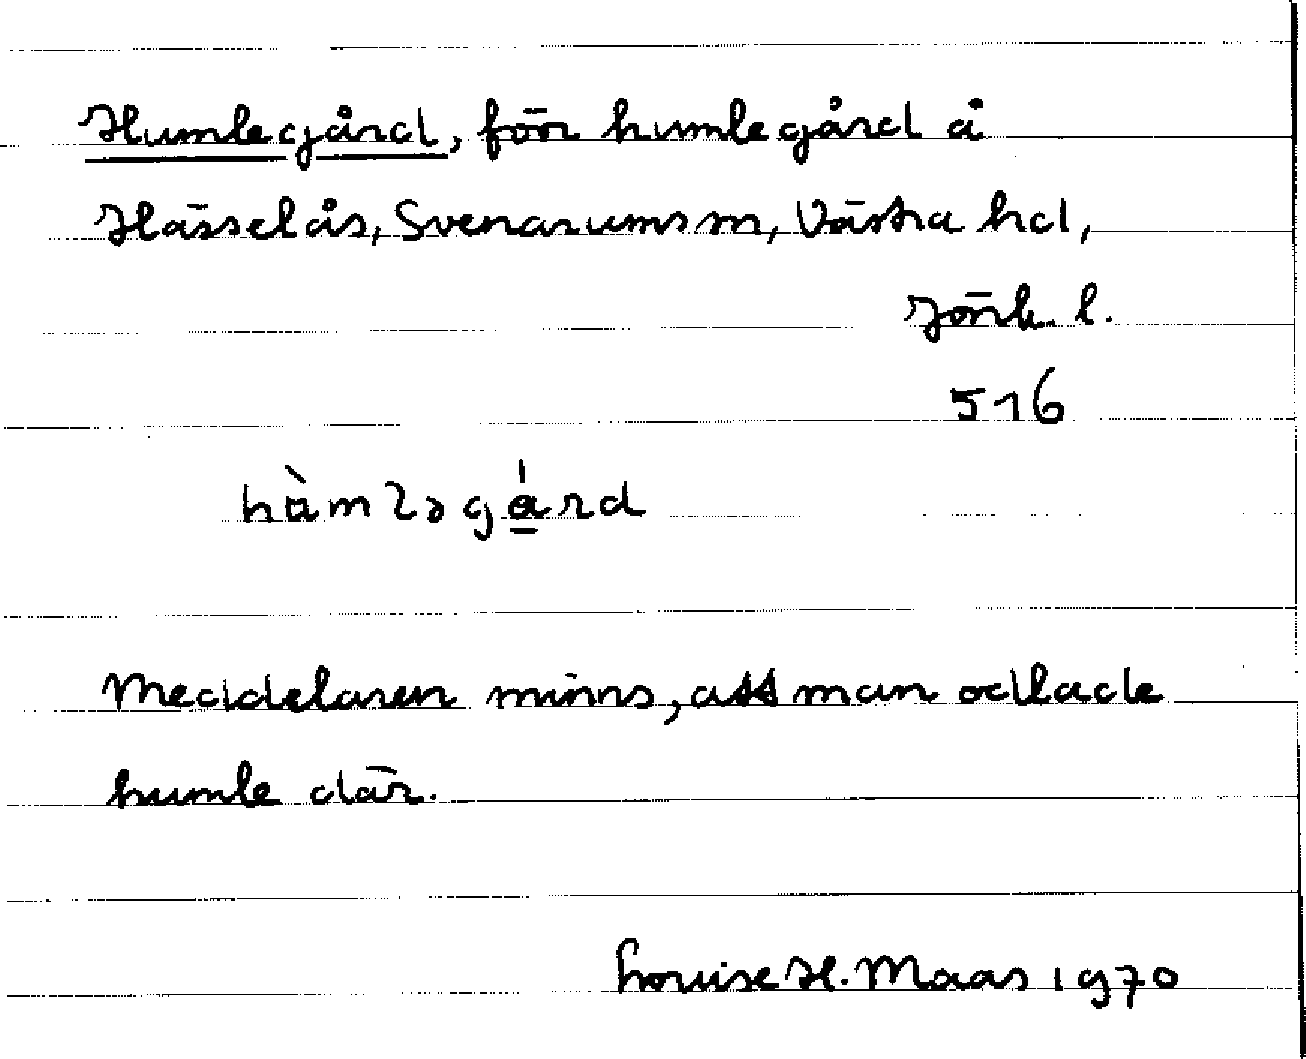 Humlegård, förr humlegård å
Hässelås, Svenarums sn, Västra hd,
Jönk. l.
516
hàmləgá̱rd
Meddelaren minns, att man odlade
humle där.
Louise H. Maas 1970